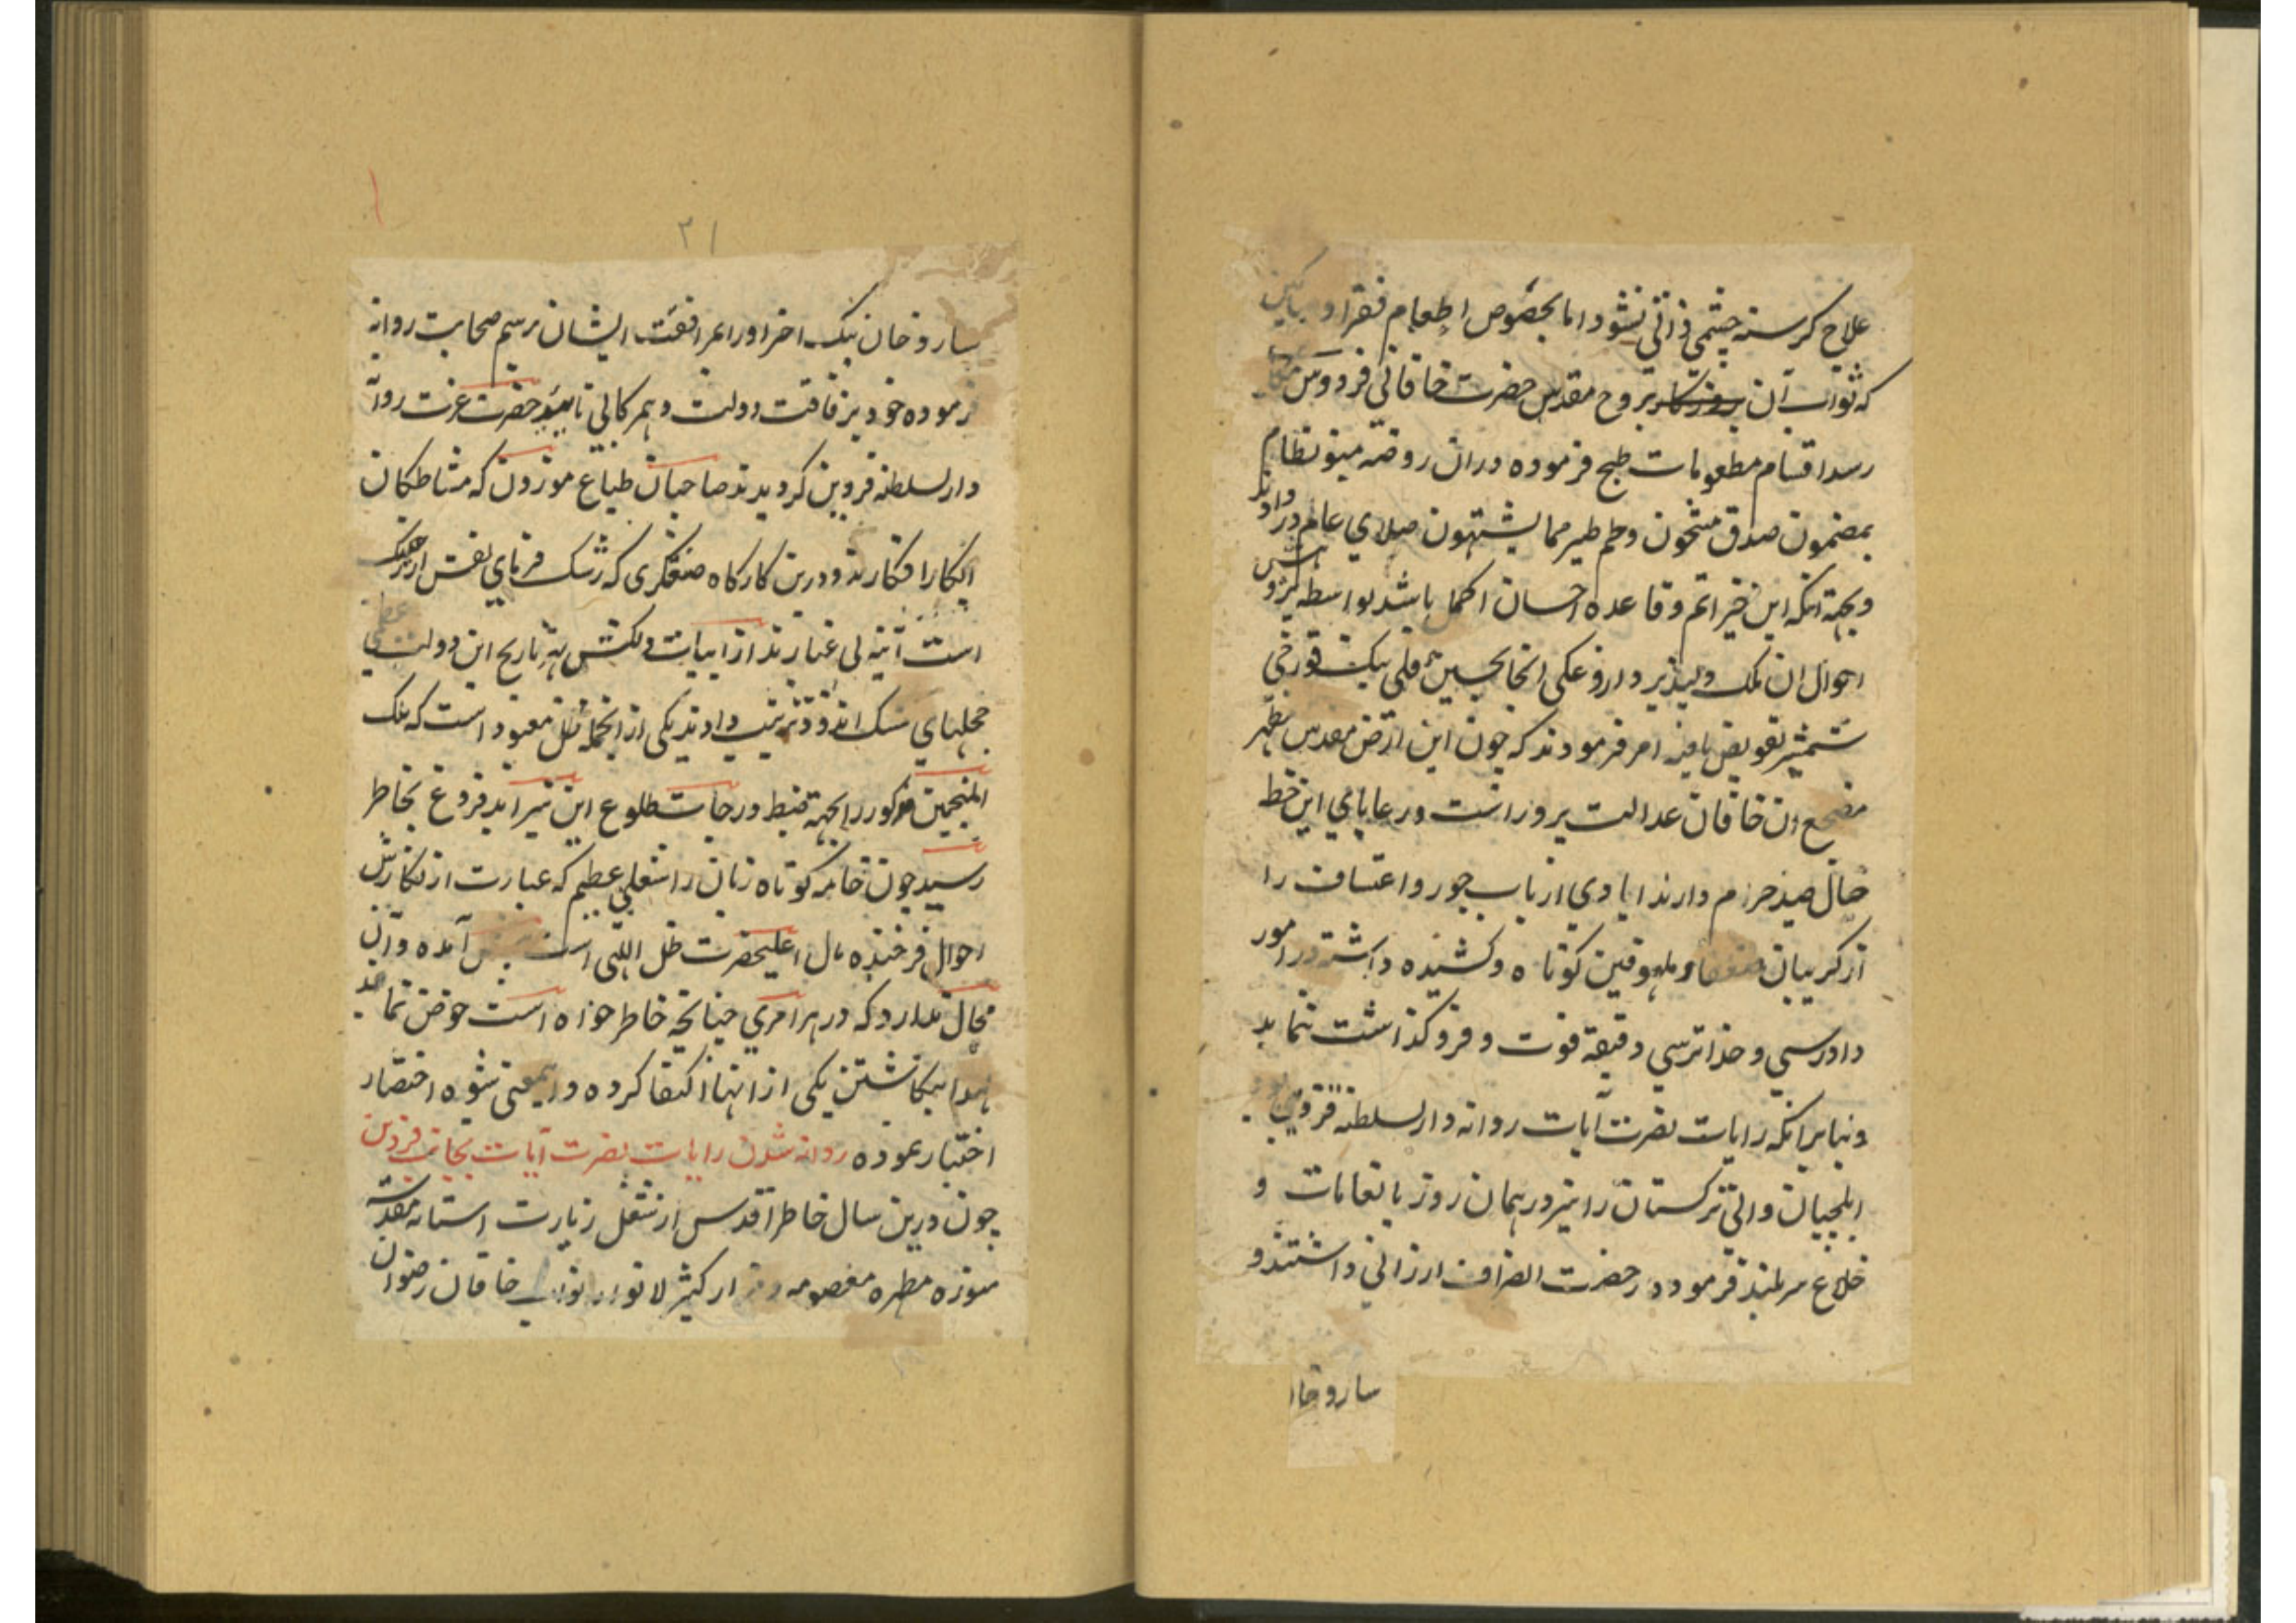 علاج کرسنه چشمی ذاتی نشود اما بخصوص اطعام فقرا و
که ثواب آن بروح مقدس حضرت خاقانی فردوس مکان
رسد اقسام مطعومات طبخ فرموده دران روضه مینو نظام
بمضمون صدق مشحون و لحم طیر مما یشتهون صلای عام در دادند
و بجهة انکه این خیر اتم و قاعده احسان اکمل باشد بواسطه
احوال ان ملک دلپذیر و داروغکی انجا بحسین قلی بیک قورچی
شمشیر تفویض یافته امر فرمودند که چون این ارض مقدس مطهر
مضجع ان خاقان عدالت پرور است و رعایای این خطه
حال صید حرم دارند ایادی ارباب جور و اعتساف را
از کریبان ضعفا و ملهوفین کوتاه و کشیده داشته در امور
دادرسی و خداترسی دقیقه فوت و فروکذاشت ننماید
و بنابر انکه رایات نصرت آیات روانه دارالسلطنه قزوین بود
ایلچیان والی ترکستان را نیز در همان روز بانعامات و
خلاع سربلند فرموده رخصت انصراف ارزانی داشتند و
ساروخا
۳۱
ساروخان بیک اخر اور ابمرافقت ایشان برسم صحابت روانه
فرموده خود برفاقت دولت و همرکابی تایید حضرت عزت روانه
دارالسلطنه قزوین کردیدند صاحبان طباع موزون که مشاطکان
ابکار افکارند و درین کارکاه صنعتکری که رشک فرمای نقش ارژنک
است آینه بی غبارند از ابیات دلکش بته تاریخ این دولت عظمی
حجلهای مشک اندود ترتیب دادند یکی از انجمله ظل معبود است که ملک
المنجمین مذکور را بجهة ضبط درجات طلوع این نیر ابد فروغ بخاطر
رسید چون خامه کوتاه زبان را شغلی عظیم که عبارت از نکارش
احوال فرخنده مال اعلیحضرت ظل اللهی است پیش آمده و ان
مجال ندارد که در هر امری چنانچه خاطر خواه است خوض نماید
لهذا بنکاشتن یکی از انها اکتفا کرده و اینمعنی شیوه اختصار
اختیار نموده روانه شدن رایات نصرت آیات بجانب قزوین
چون درین سال خاطر اقدس از شغل زیارت استانه مقدسه
منوره مطهره معصومه و مزار کثیر الانوار نواب خاقان رضوان